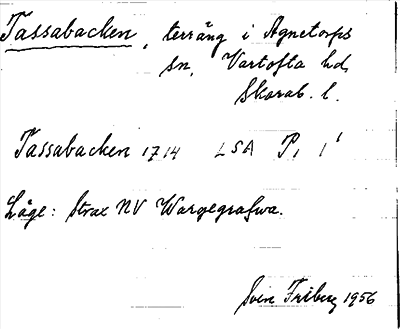 Tassabacken, terräng i Agnetorps
sn, Vartofta hd,
Skarab. l.
Tassabacken 1714 LSA P, 1'
Läge: strax NV Wargegrafwa.
Sven Friberg 1956